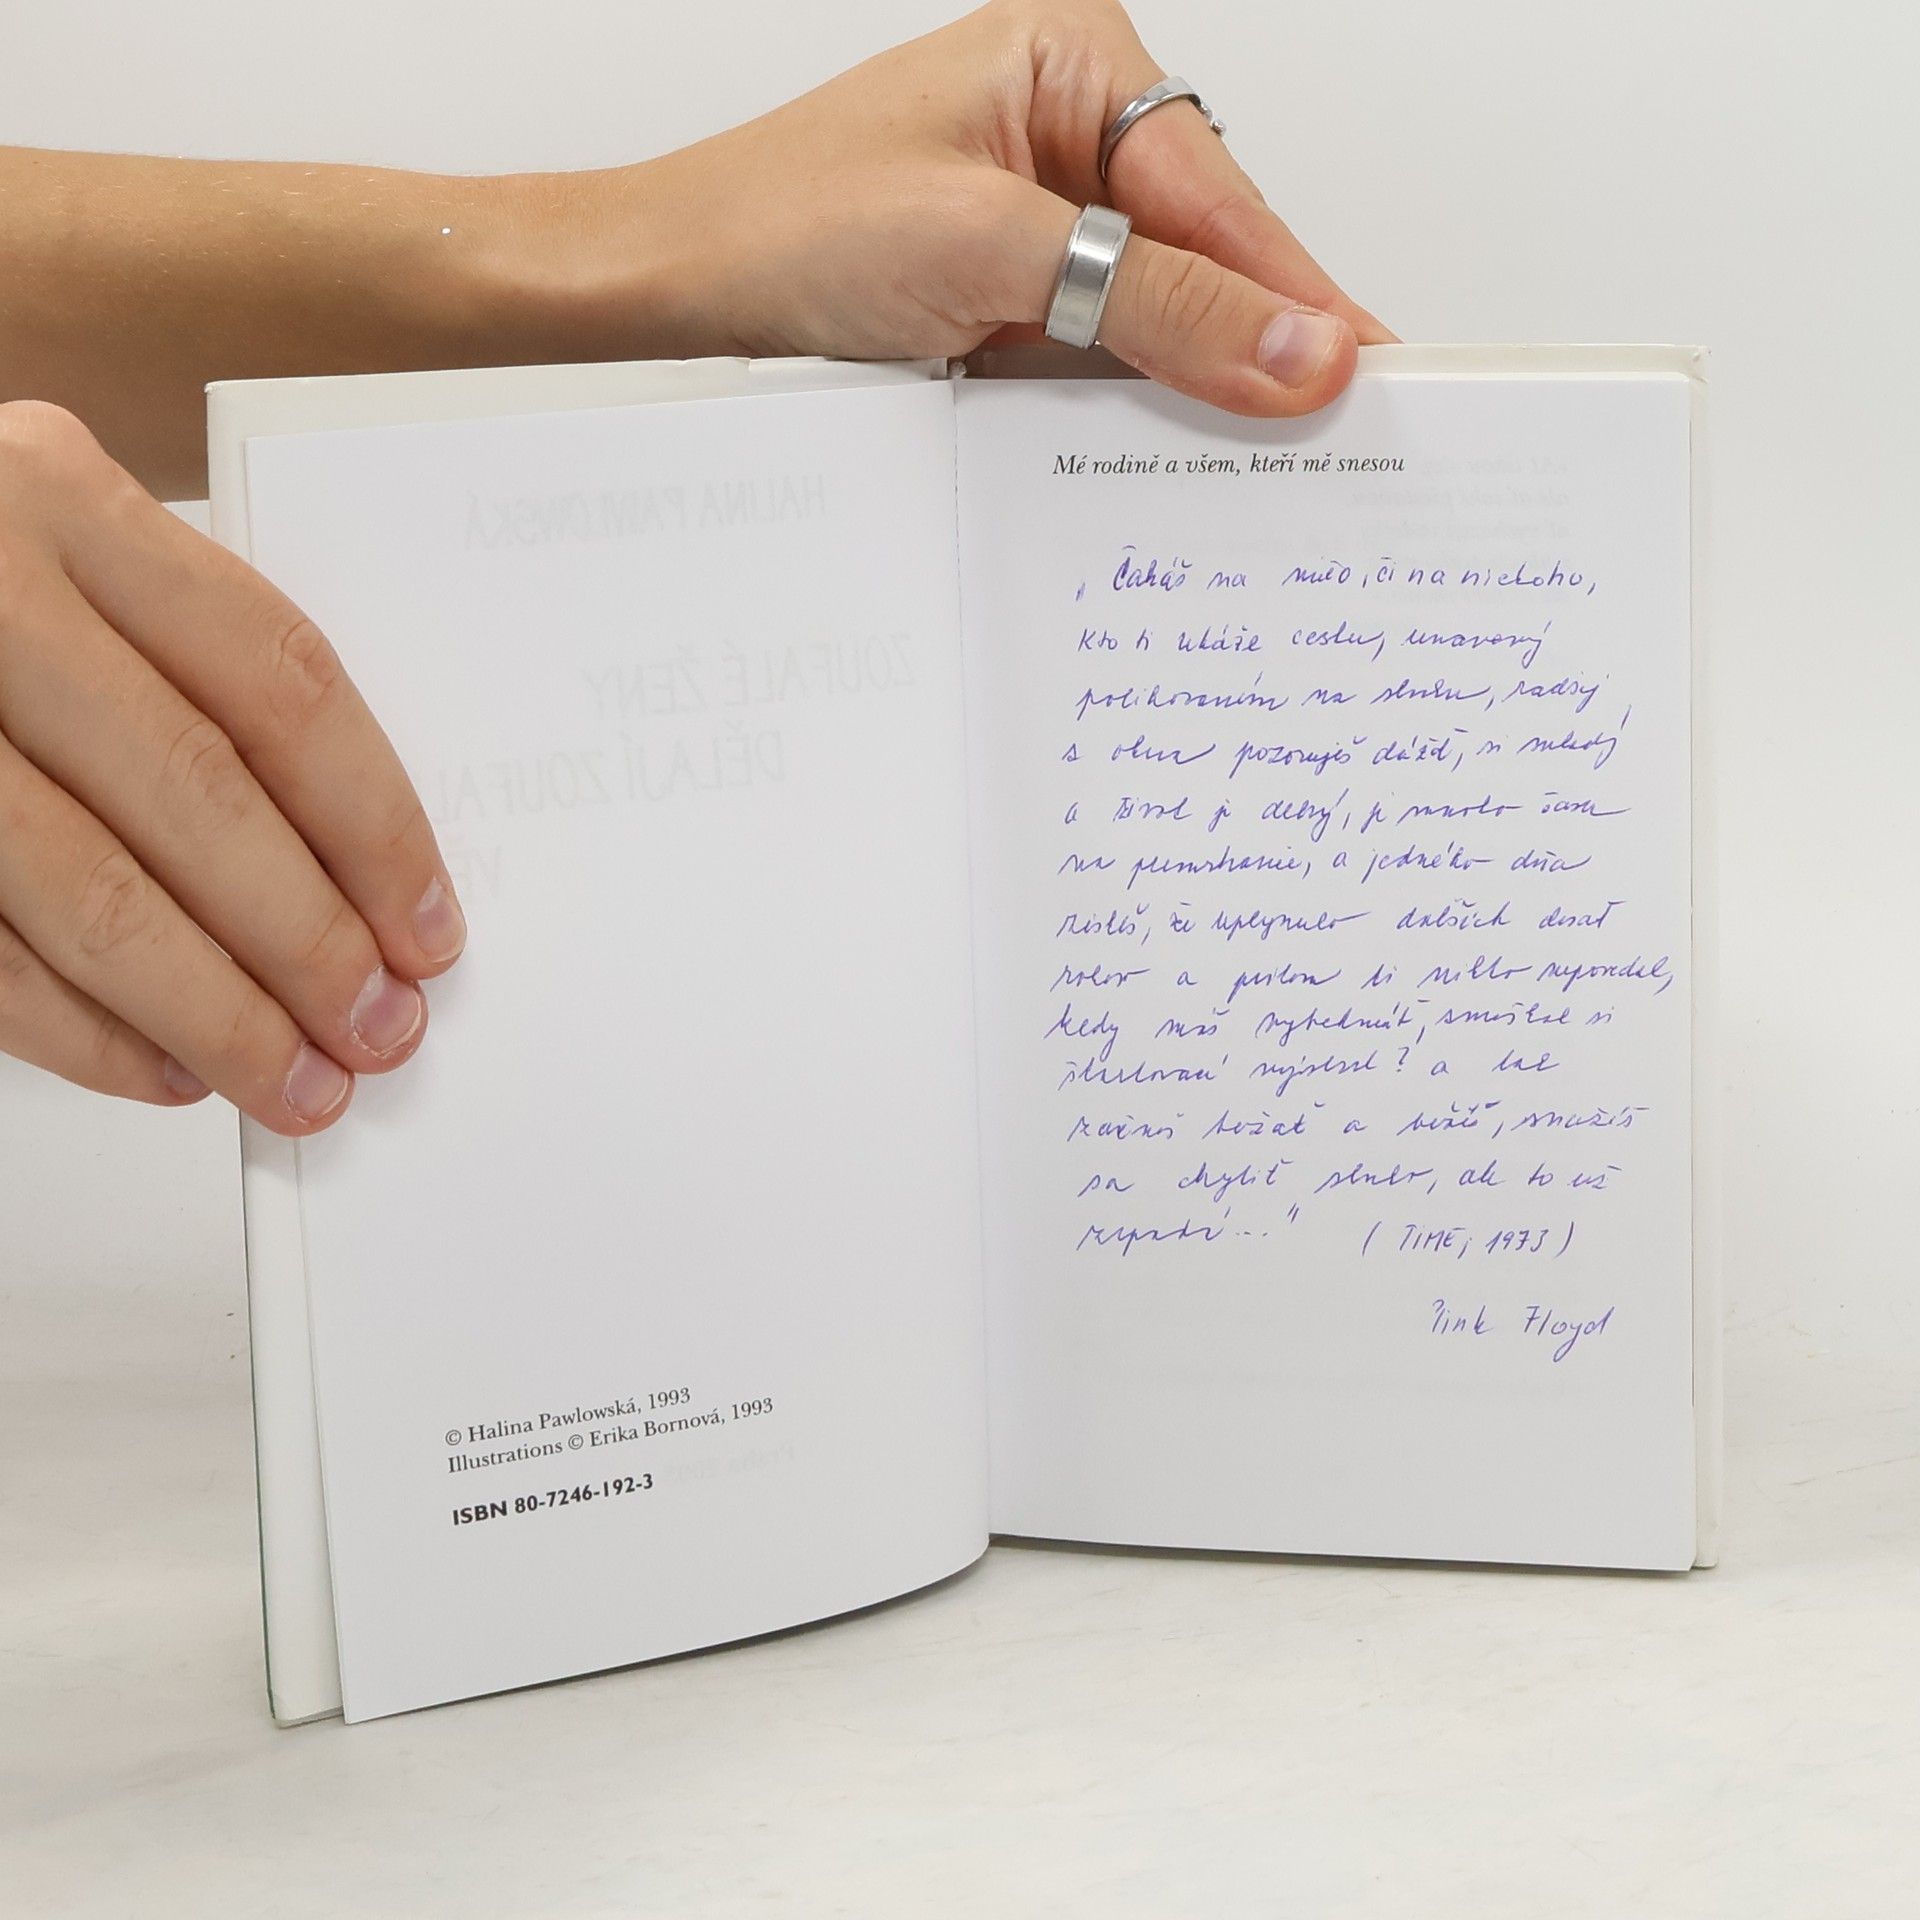 HALINA PAWLOWSKÁ
ZOUFALÉ ŽENY
DĚLAJÍ ZOUFAL
VĚ
© Halina Pawlowská, 1993
Illustrations © Erika Bornová, 1993
ISBN 80-7246-192-3
Mé rodině a všem, kteří mě snesou
„Čakáš na niečo, či na niekoho,
kto ti ukáže cestu, unavený
polihovaním na slnku, radšej
z okna pozoruješ dážď, si mladý
a život je dlhý, je mnoho času
na premrhanie, a jedného dňa
zistíš, že uplynulo ďalších desať
rokov a pritom ti nikto nepovedal,
kedy máš vybehnúť, zmeškal si
štartovací výstrel? a tak
začneš bežať a bežíš, snažíš
sa chytiť slnko, ale to už
zapadá..."  (TIME, 1973)
Pink Floyd